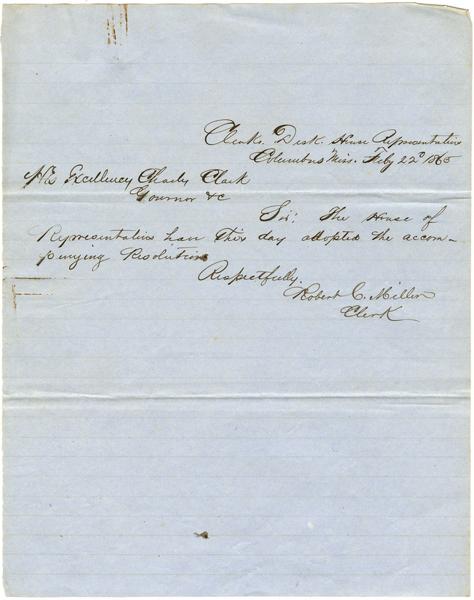 Clerks Desk House Representatives
Columbus Miss. Feby 22d 1865
His Excellency Charles Clark
Governor &c
Sir: The House of
Representatives have this day adopted the accom-
panying Resolution
Respectfully.
Robert C. Miller
Clerk